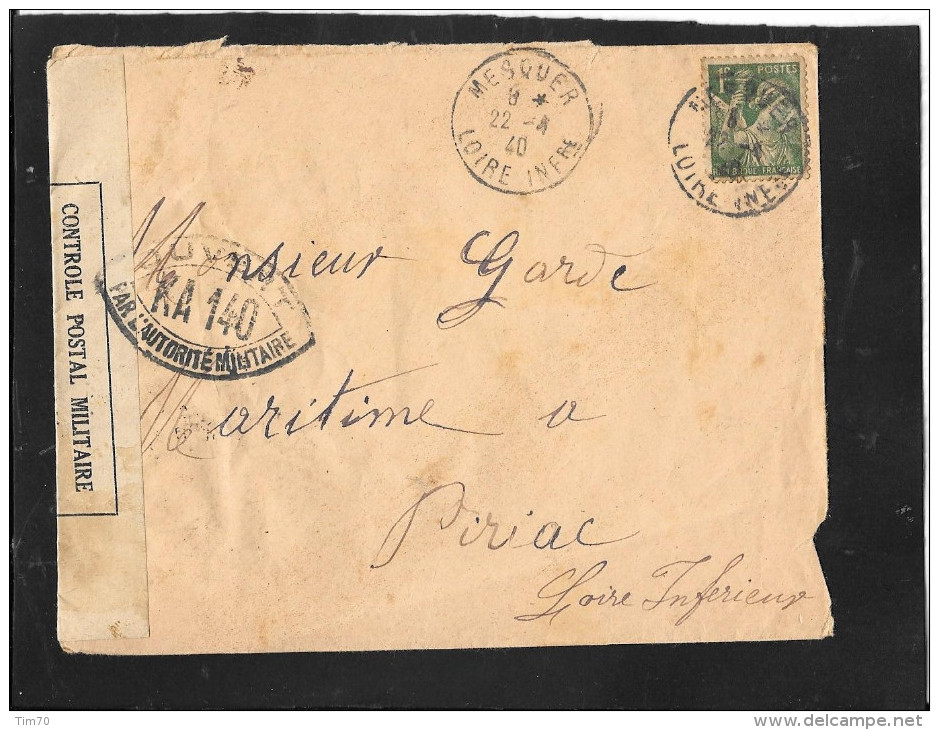 MESQUER
8 *
22 -4
40
LOIRE INFRE
1F POSTES
FRANÇAISE
MESQUER
22
LOIRE INFRE
CONTROLE POSTAL MILITAIRE
OUVERT
KA 140
PAR L'AUTORITÉ MILITAIRE
Monsieur Garde
Maritime a
Piriac
Loire Inferieur
Tim70
www.delcampe.net